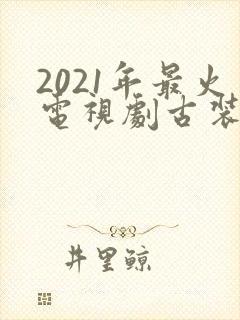 2021年最火
電視劇古裝
井里鯨